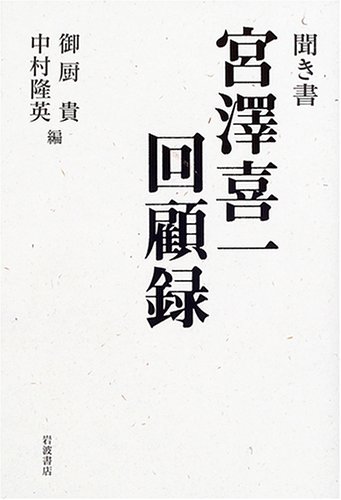 聞き書
宮澤喜一
回顧録
御厨 貴
中村隆英 編
岩波書店